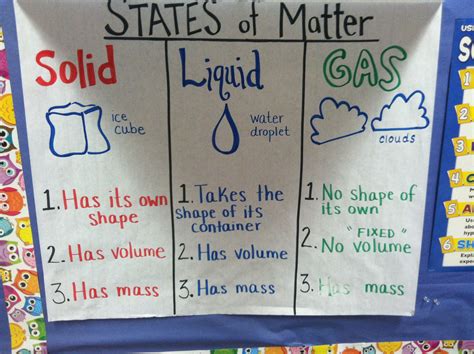 STATES of Matter
Solid
ice
cube
1. Has its own
shape
2. Has volume
3. Has mass
Liquid
water
droplet
1. Takes the
shape of its
container
2. Has volume
3. Has mass
GAS
clouds
1. No shape of
its own.
"FIXED"
2. No volume
3. Has mass